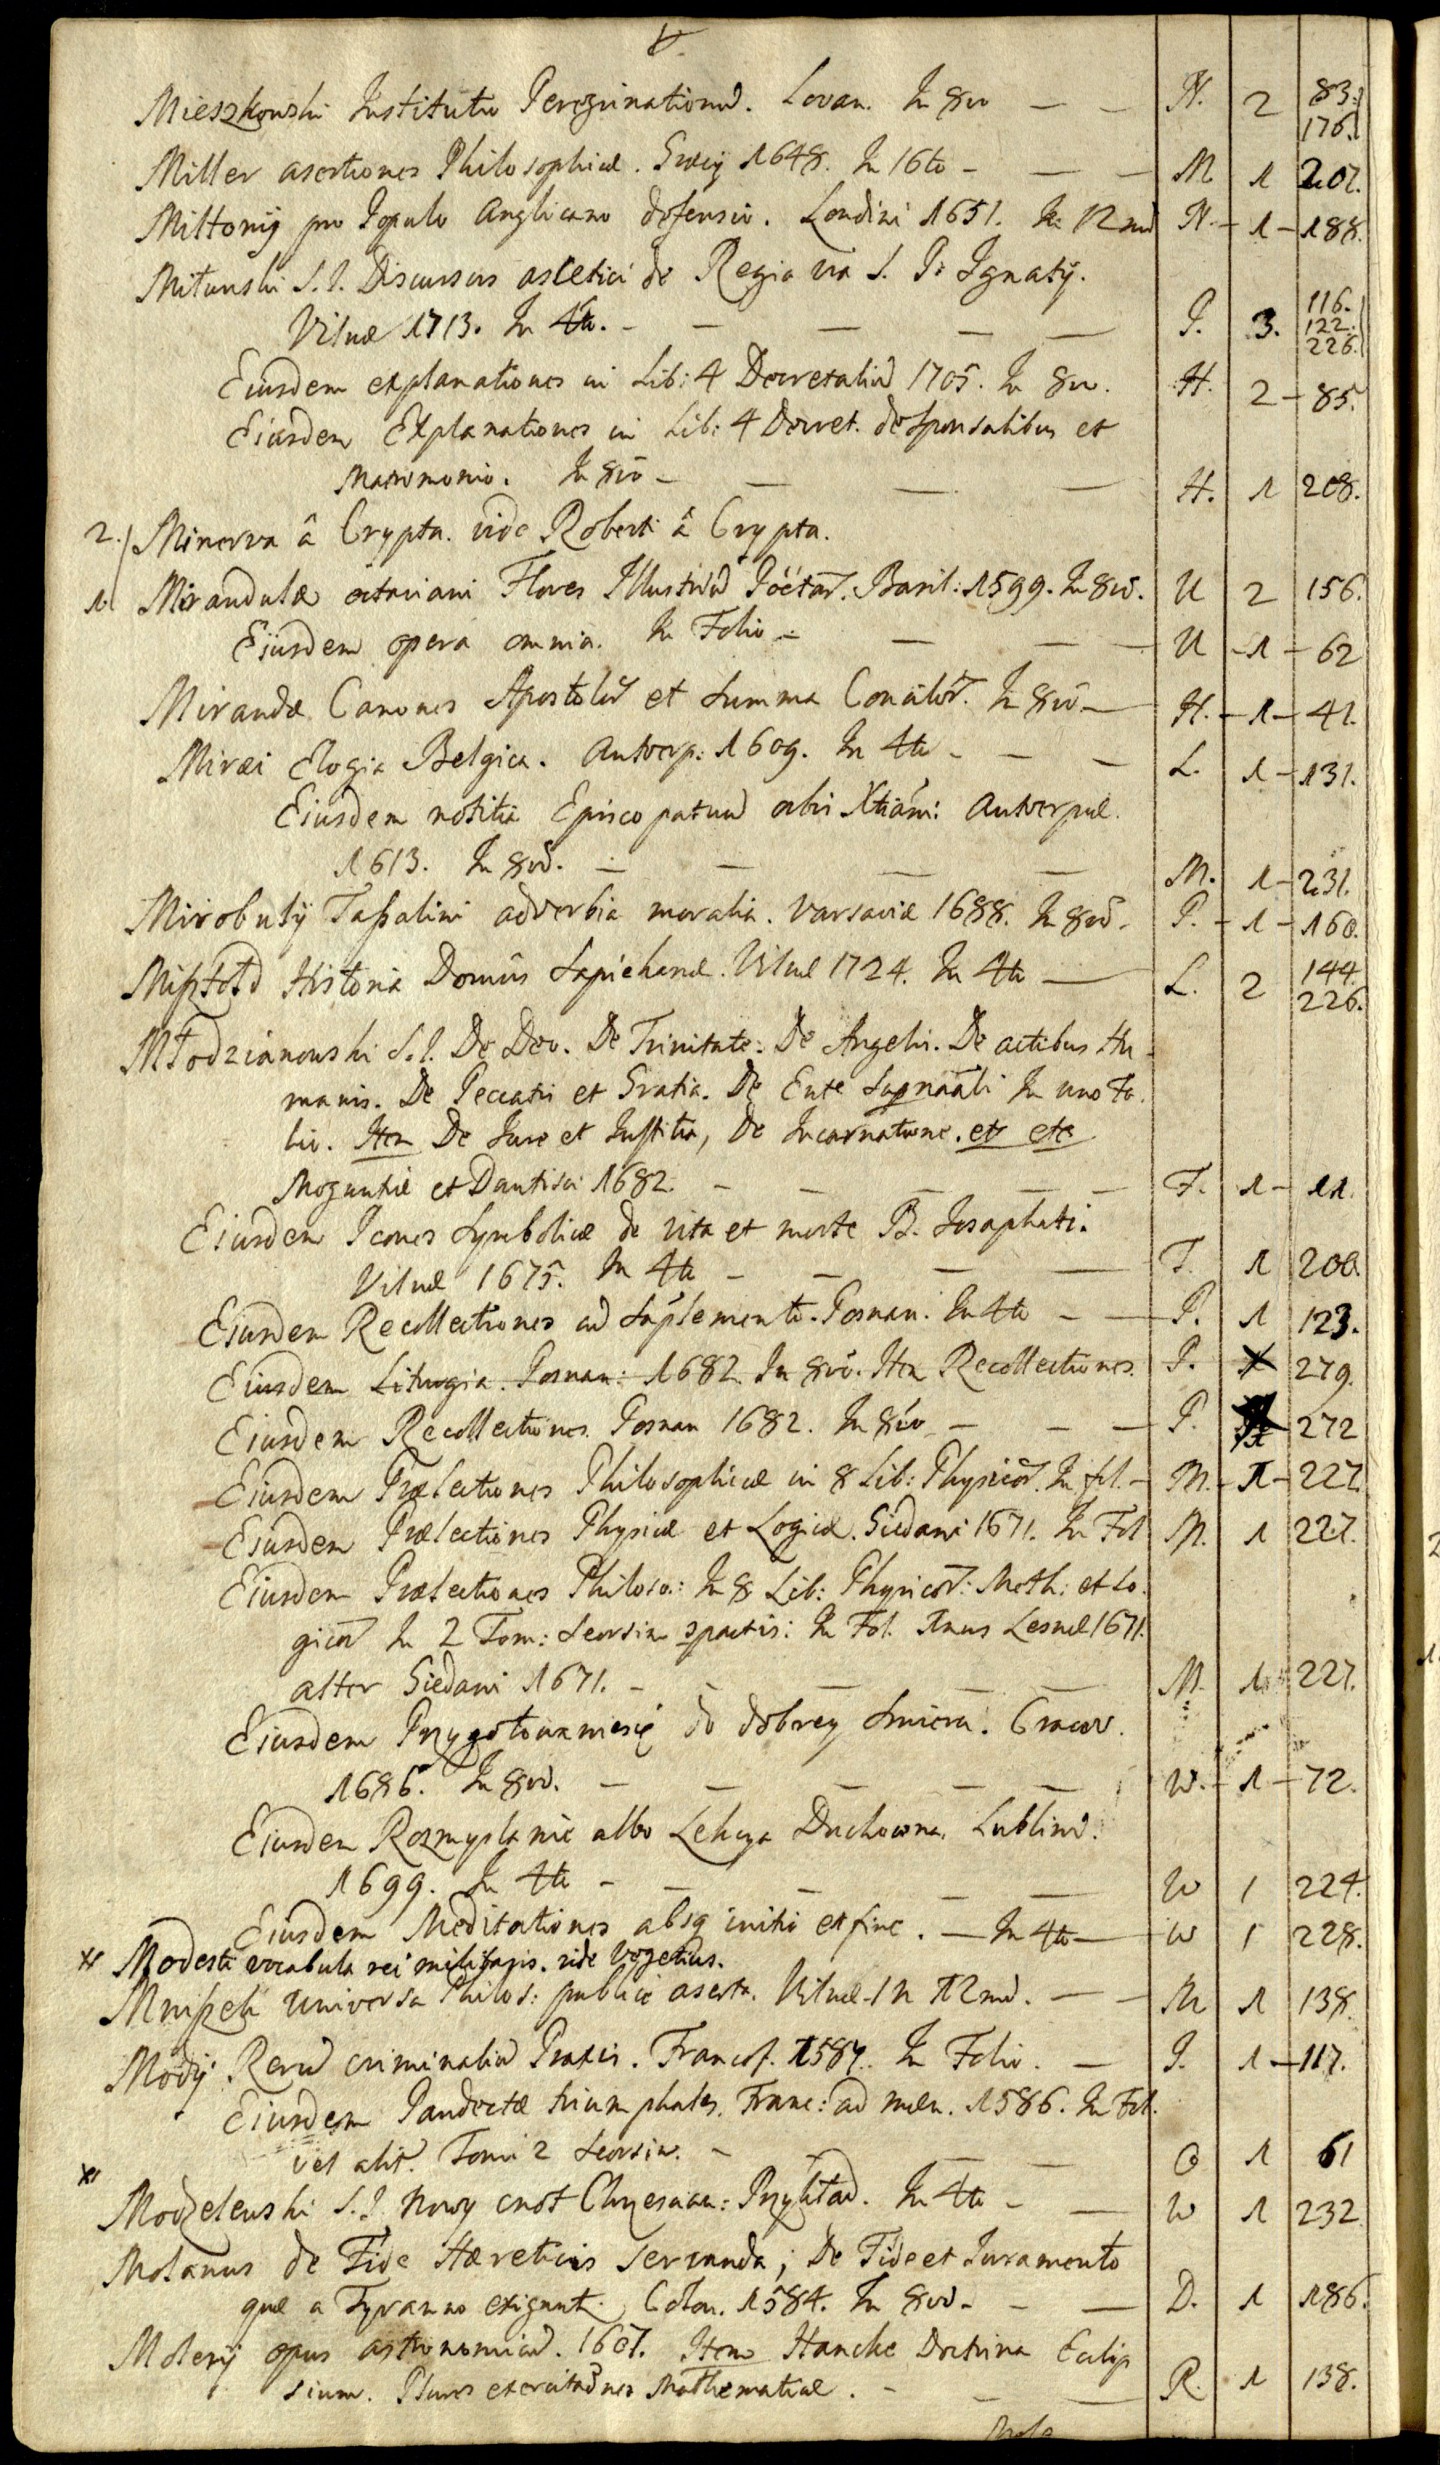 Mieszkowski Institutio Peregrinationũ. Lovan. In 8vo — — N. 2 83.
176.
Miller asertiones Philosophicæ. Græcij 1648. In 16to — — — M 1 207.
Miltonij pro Populo Anglicano defensio. Londini 1651. In 12mo N. - 1 - 188.
Mitunski S.J. Discursus ascetici de Regia via S. P. Ignatij.
Vilnæ 1713. In 4to. — — — — — P. 3. 116.
122.
226.
Eiusdem explanationes in Lib: 4 Decretaliũ 1705. In 8vo. H. 2 - 85.
Eiusdem Explanationes in Lib: 4 Decret. de Sponsalibus et
Matrimonio. In 8vo — — — — H. 1 208.
2. Minerva â Crypta. vide Roberti â Crypta.
1. Mirandulæ octaviani Flores Illustriũ Poëtar. Basil: 1599. In 8vo. U 2 156.
Eiusdem opera omnia. In Folio — — — — U - 1 - 62
Mirandæ Canones Apostolor et Summa Concilior. In 8vo — H. - 1 - 41.
Miræi Elogia Belgica. Antverp: 1609. In 4to — — — L. 1 - 131.
Eiusdem notitia Episcopatuũ orbis Xtiani: Antverpiæ.
1613. In 8vo. — — — — M. 1 - 231.
Mirobulij Tassalini adverbia moralia. Varsaviæ 1688. In 8vo. P. - 1 - 160.
Misztołd Historia Domûs Sapiehanæ. Vilnæ 1724. In 4to — L. 2 144.
226.
Młodzianowski S.J. De Deo. De Trinitate. De Angelis. De actibus Hu-
manis. De Peccatis et Gratia. De Ente Supnaãli In uno Fo.
lio. Item De Jure et Justitia, De Incarnatione. etc etc
Moguntiæ et Dantisci 1682. — — — — — F. 1 - 11.
Eiusdem Icones Symbolicæ de vita et morte B. Josaphati.
Vilnæ 1675. In 4to — — — — F. 1 200.
Eiusdem Recollectiones cũ Suplemento. Posnan. In 4to — — P. 1 123.
Eiusdem Liturgia. Posnan: 1682. In 8vo. Item Recollectiones. P. 279.
Eiusdem Recollectiones. Posnan 1682. In 8vo — — — P. 272
Eiusdem Prælectiones Philosophicæ in 8 Lib: Physicor. In fol. — M. - 1 - 227.
Eiusdem Prælectiones Physicæ et Logicæ. Giedani 1671. In Fol M. 1 227.
Eiusdem Prælectiones Philoso: In 8 Lib: Physicor: Meth: et Lo.
gicor In 2 Tom: Seorsim spartis: In Fol. Unus Lesnæ 1671.
alter Giedani 1671. — — — — — M. 1 227.
Eiusdem Przygotowaniesię do dobrey śmierci. Cracov.
1686. In 8vo. — — — — — W. - 1 - 72.
Eiusdem Rozmyslanie albo Lekcya Duchowna. Lublinũ.
1699. In 4to — — — — — W 1 224.
Eiusdem Meditationes absq initio et fine. — In 4to — W 1 228.
Modesti vocabula rei militaris. vide Vegetius.
Mniszek Universa Philos: publicè aserta. Vilnæ. In 12mo. — — M 1 138.
Modij Rerũ criminaliũ Praxis. Francof. 1587. In Folio. — J. 1 - 117.
Eiusdem Pandectæ triumphales. Franc: ad mæn. 1586. In Fol.
vel alit. Tomi 2 Seorsim. — — — — O 1 61
Modzelewski S.J. Nowy cnot Chrzescian: Przykład. In 4to — — W 1 232
Molanus de Fide Hæreticis servanda; De Fide et Juramento
quæ a Tyranno exigunt. Colon. 1584. In 8vo — — — D. 1 186.
Molerij opus astronomicũ. 1607. Item Hancke Doctrina Eclip
sium. Plures exercitãones Mathematicæ. — — — R. 1 138.
Mola